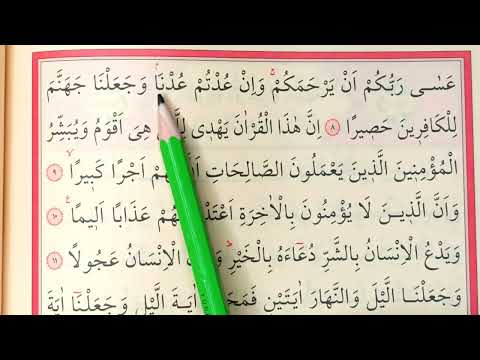 عَسٰى رَبُّكُمْ اَنْ يَرْحَمَكُمْۚ وَاِنْ عُدْتُمْ عُدْنَاۢ وَجَعَلْنَا جَهَنَّمَ
لِلْكَافِرِينَ حَصِيرًا ٨ اِنَّ هٰذَا الْقُرْاٰنَ يَهْدِى هِىَ اَقْوَمُ وَيُبَشِّرُ
الْمُؤْمِنِينَ الَّذِينَ يَعْمَلُونَ الصَّالِحَاتِ اَجْرًا كَبِيرًاۙ ٩
وَاَنَّ الَّذِينَ لَا يُؤْمِنُونَ بِالْاٰخِرَةِ عَذَابًا اَلِيمًا۟ ١٠
وَيَدْعُ الْاِنْسَانُ بِالشَّرِّ دُعَاءَهُ بِالْخَيْرِۜ الْاِنْسَانُ عَجُولًا ١١
وَجَعَلْنَا الَّيْلَ وَالنَّهَارَ اٰيَتَيْنِ اٰيَةَ الَّيْلِ وَجَعَلْنَا اٰيَةَ